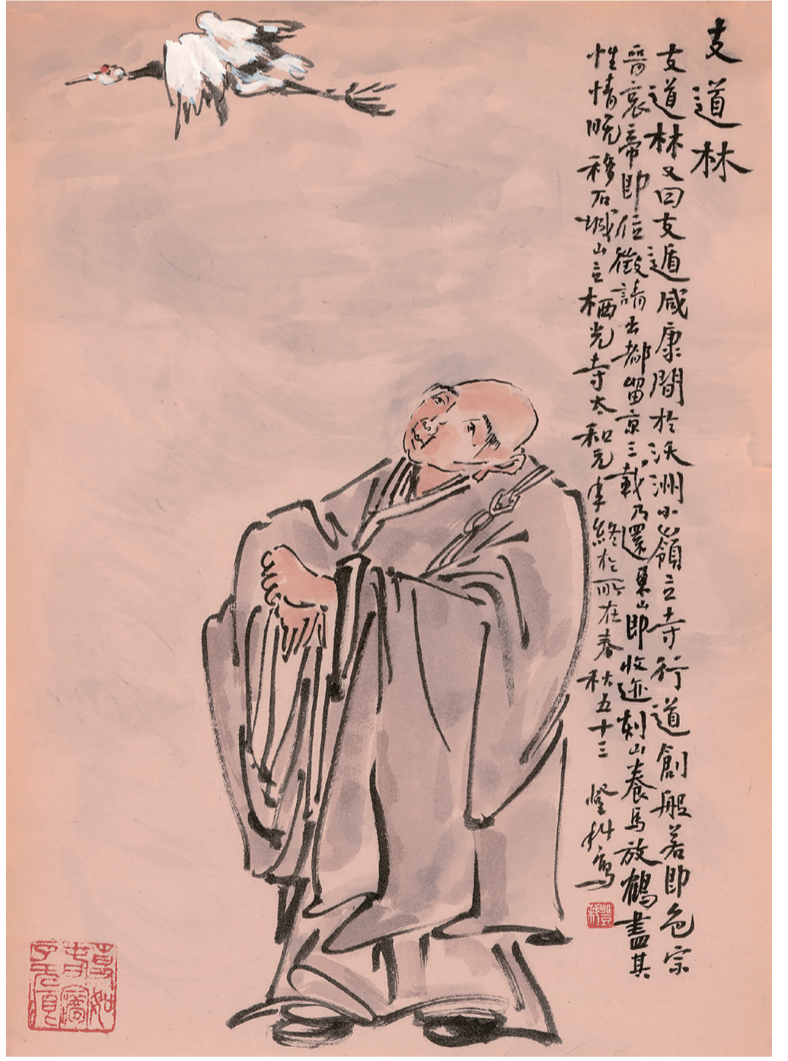 支道林
支道林又曰支遁咸康間於沃洲小嶺立寺行道創般若即色宗
晉哀帝即位徵請出都留京三載乃還東山即收迹剡山養馬放鶴盡其
性情晚移石城山立栖光寺太和元年終於所在春秋五十三